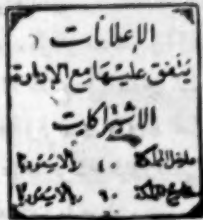 الإعلانات
يتفق عليها مع الإدارة
الاشتراكات
داخل المملكة ٤٠ ريالا سنويا
خارج المملكة ٦٠ ريالا سنويا